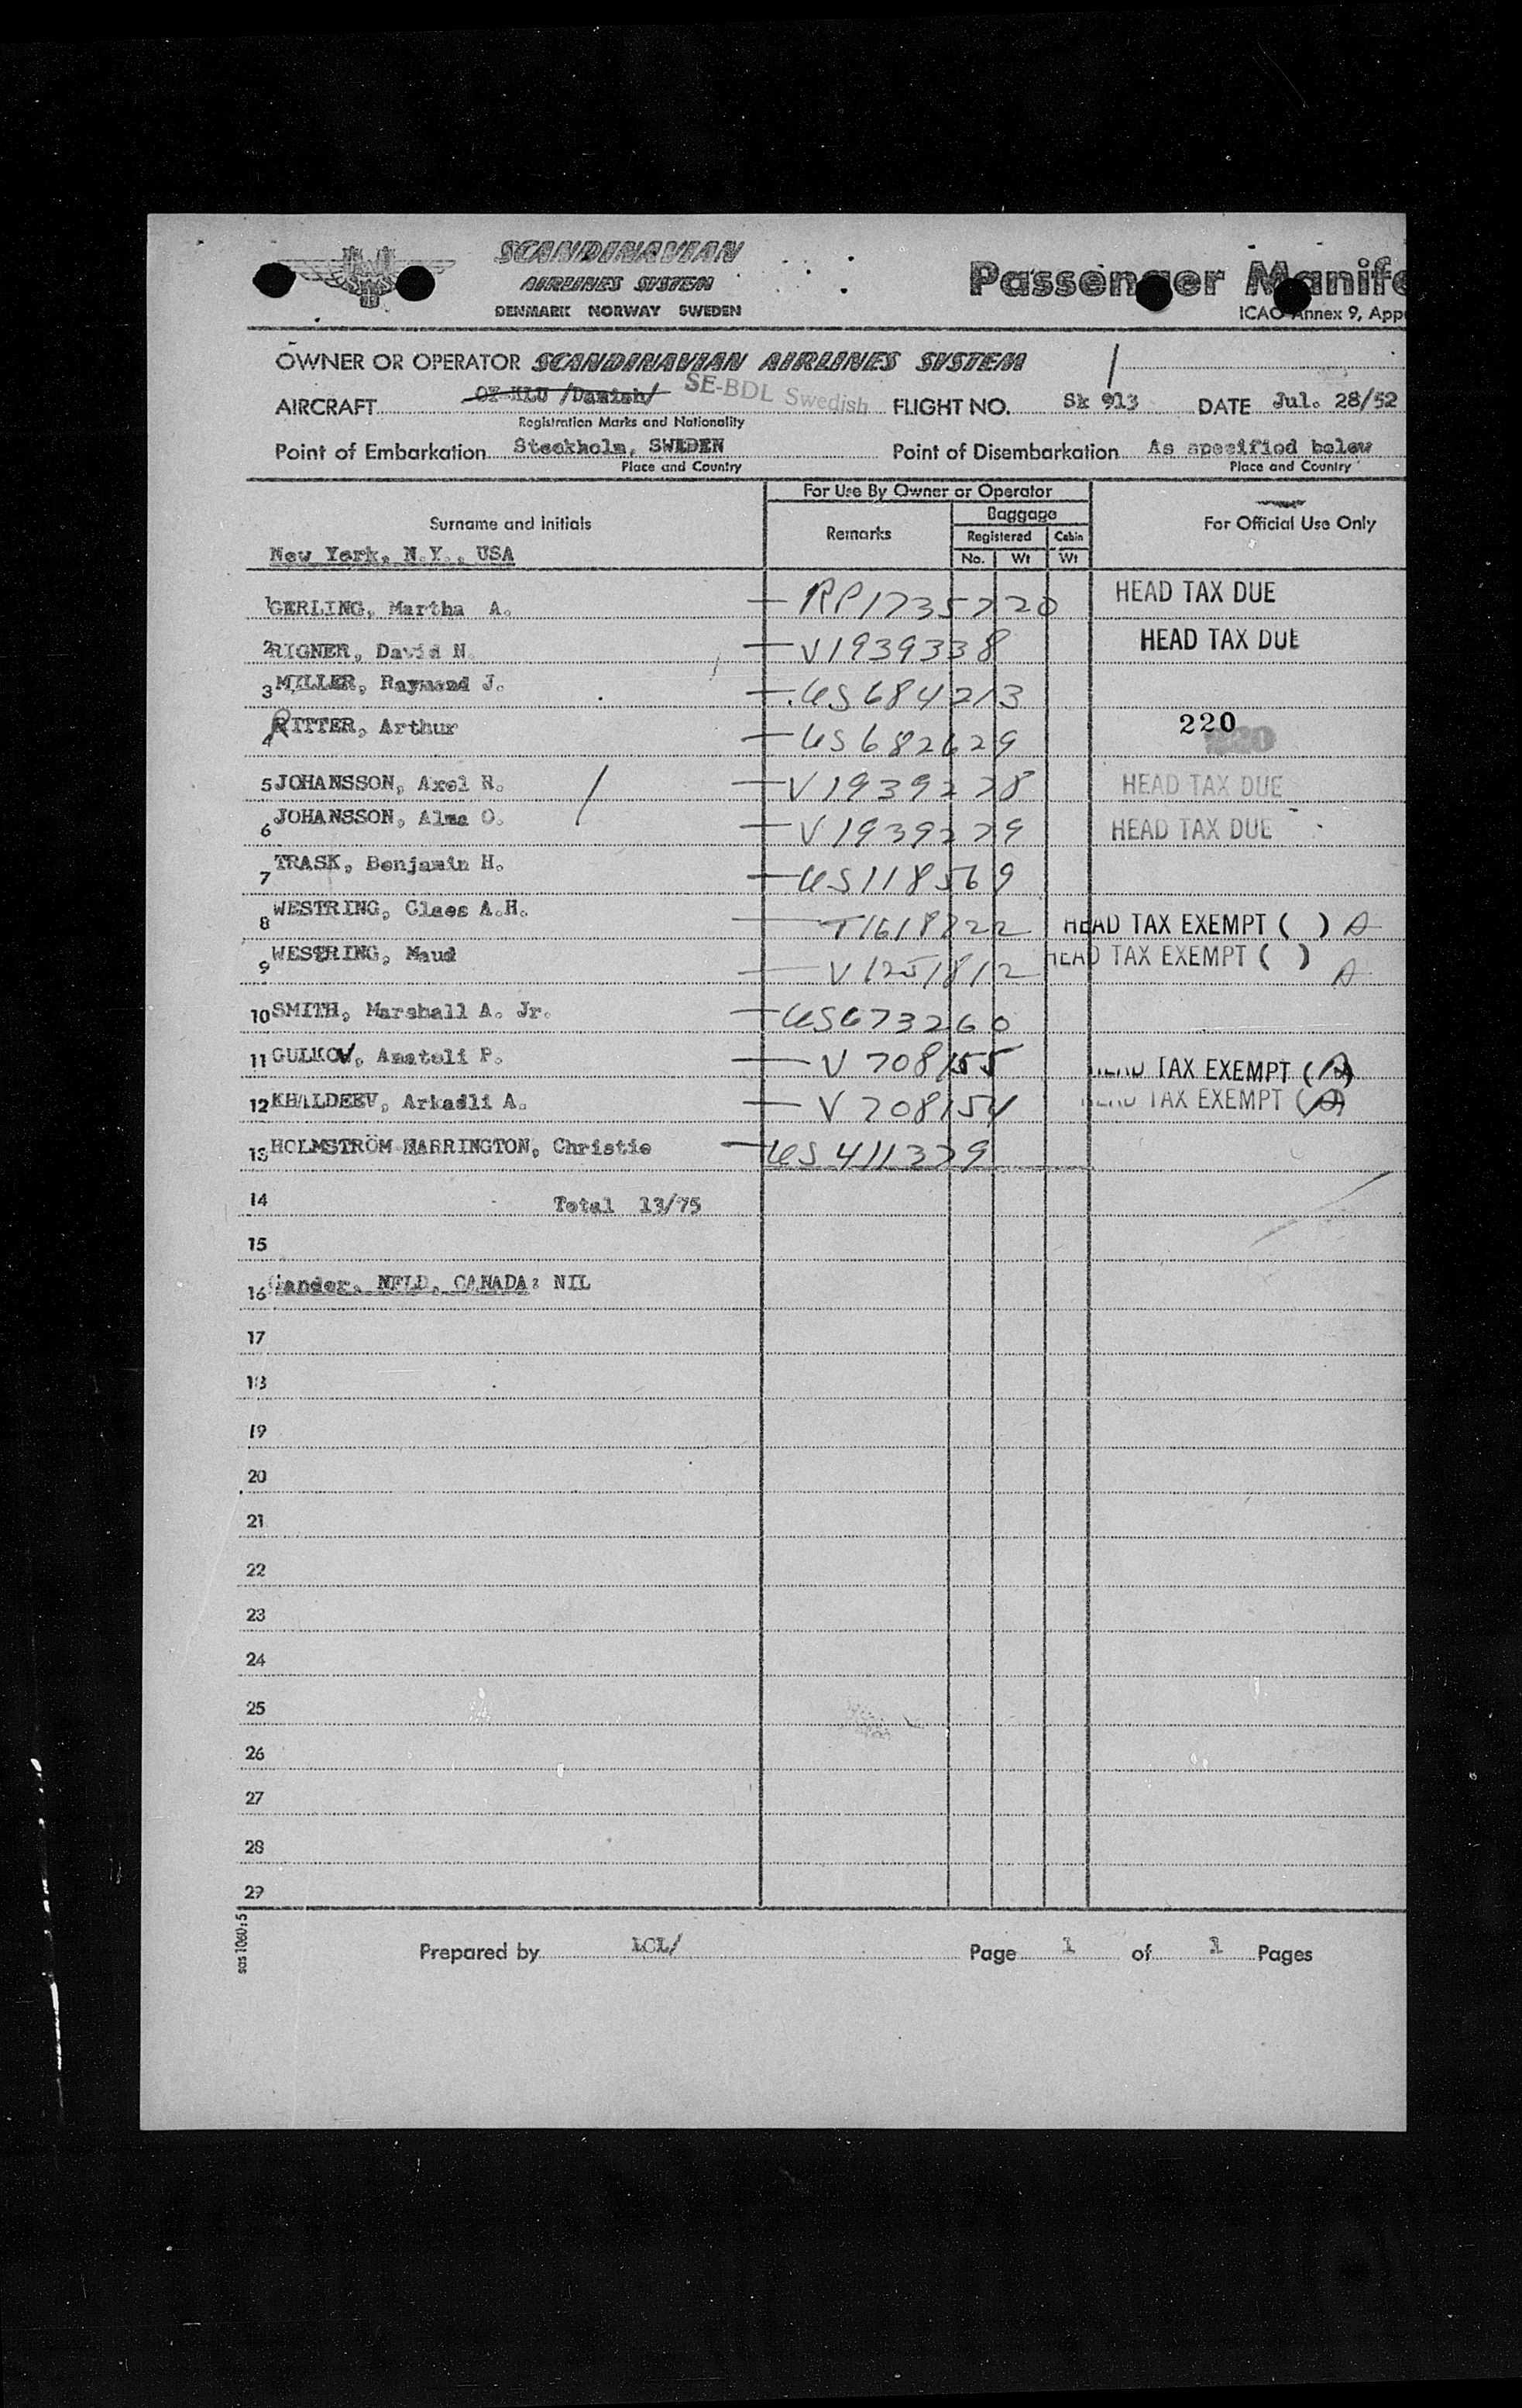 SCANDINAVIAN
AIRLINES SYSTEM
DENMARK NORWAY SWEDEN
Passenger Manife
ICAO Annex 9, App
OWNER OR OPERATOR SCANDINAVIAN AIRLINES SYSTEM
AIRCRAFT OY-KLU /Danish/ SE-BDL Swedish FLIGHT NO. Sk 913 DATE Jul. 28/52
Registration Marks and Nationality
Point of Embarkation Stockholm, SWEDEN Point of Disembarkation As specified below
Place and Country Place and Country
For Use By Owner or Operator
Surname and initials Remarks Baggage For Official Use Only
Registered Cabin
No. Wt Wt
New York, N.Y., USA
1 GERLING, Martha A. — RP1735720 HEAD TAX DUE
2 RIGNER, David N. — V1939338 HEAD TAX DUE
3 MILLER, Raymond J. — US684213
4 RITTER, Arthur — US682629 220
5 JOHANSSON, Axel R. — V1939228 HEAD TAX DUE
6 JOHANSSON, Alma O. — V1939229 HEAD TAX DUE
7 TRASK, Benjamin H. — US118569
8 WESTRING, Claes A.H. — T1618222 HEAD TAX EXEMPT ( ) A
9 WESTRING, Maud — V1251812 HEAD TAX EXEMPT ( ) A
10 SMITH, Marshall A. Jr. — US673260
11 GULKOV, Anatoli P. — V708155 HEAD TAX EXEMPT (A)
12 KHALDEEV, Arkadii A. — V708154 HEAD TAX EXEMPT (A)
13 HOLMSTRÖM HARRINGTON, Christie — US411379
14 Total 13/75
15
16 Gander, NFLD, CANADA: NIL
17
18
19
20
21
22
23
24
25
26
27
28
29
sas 1060:5
Prepared by LCL/ Page 1 of 1 Pages